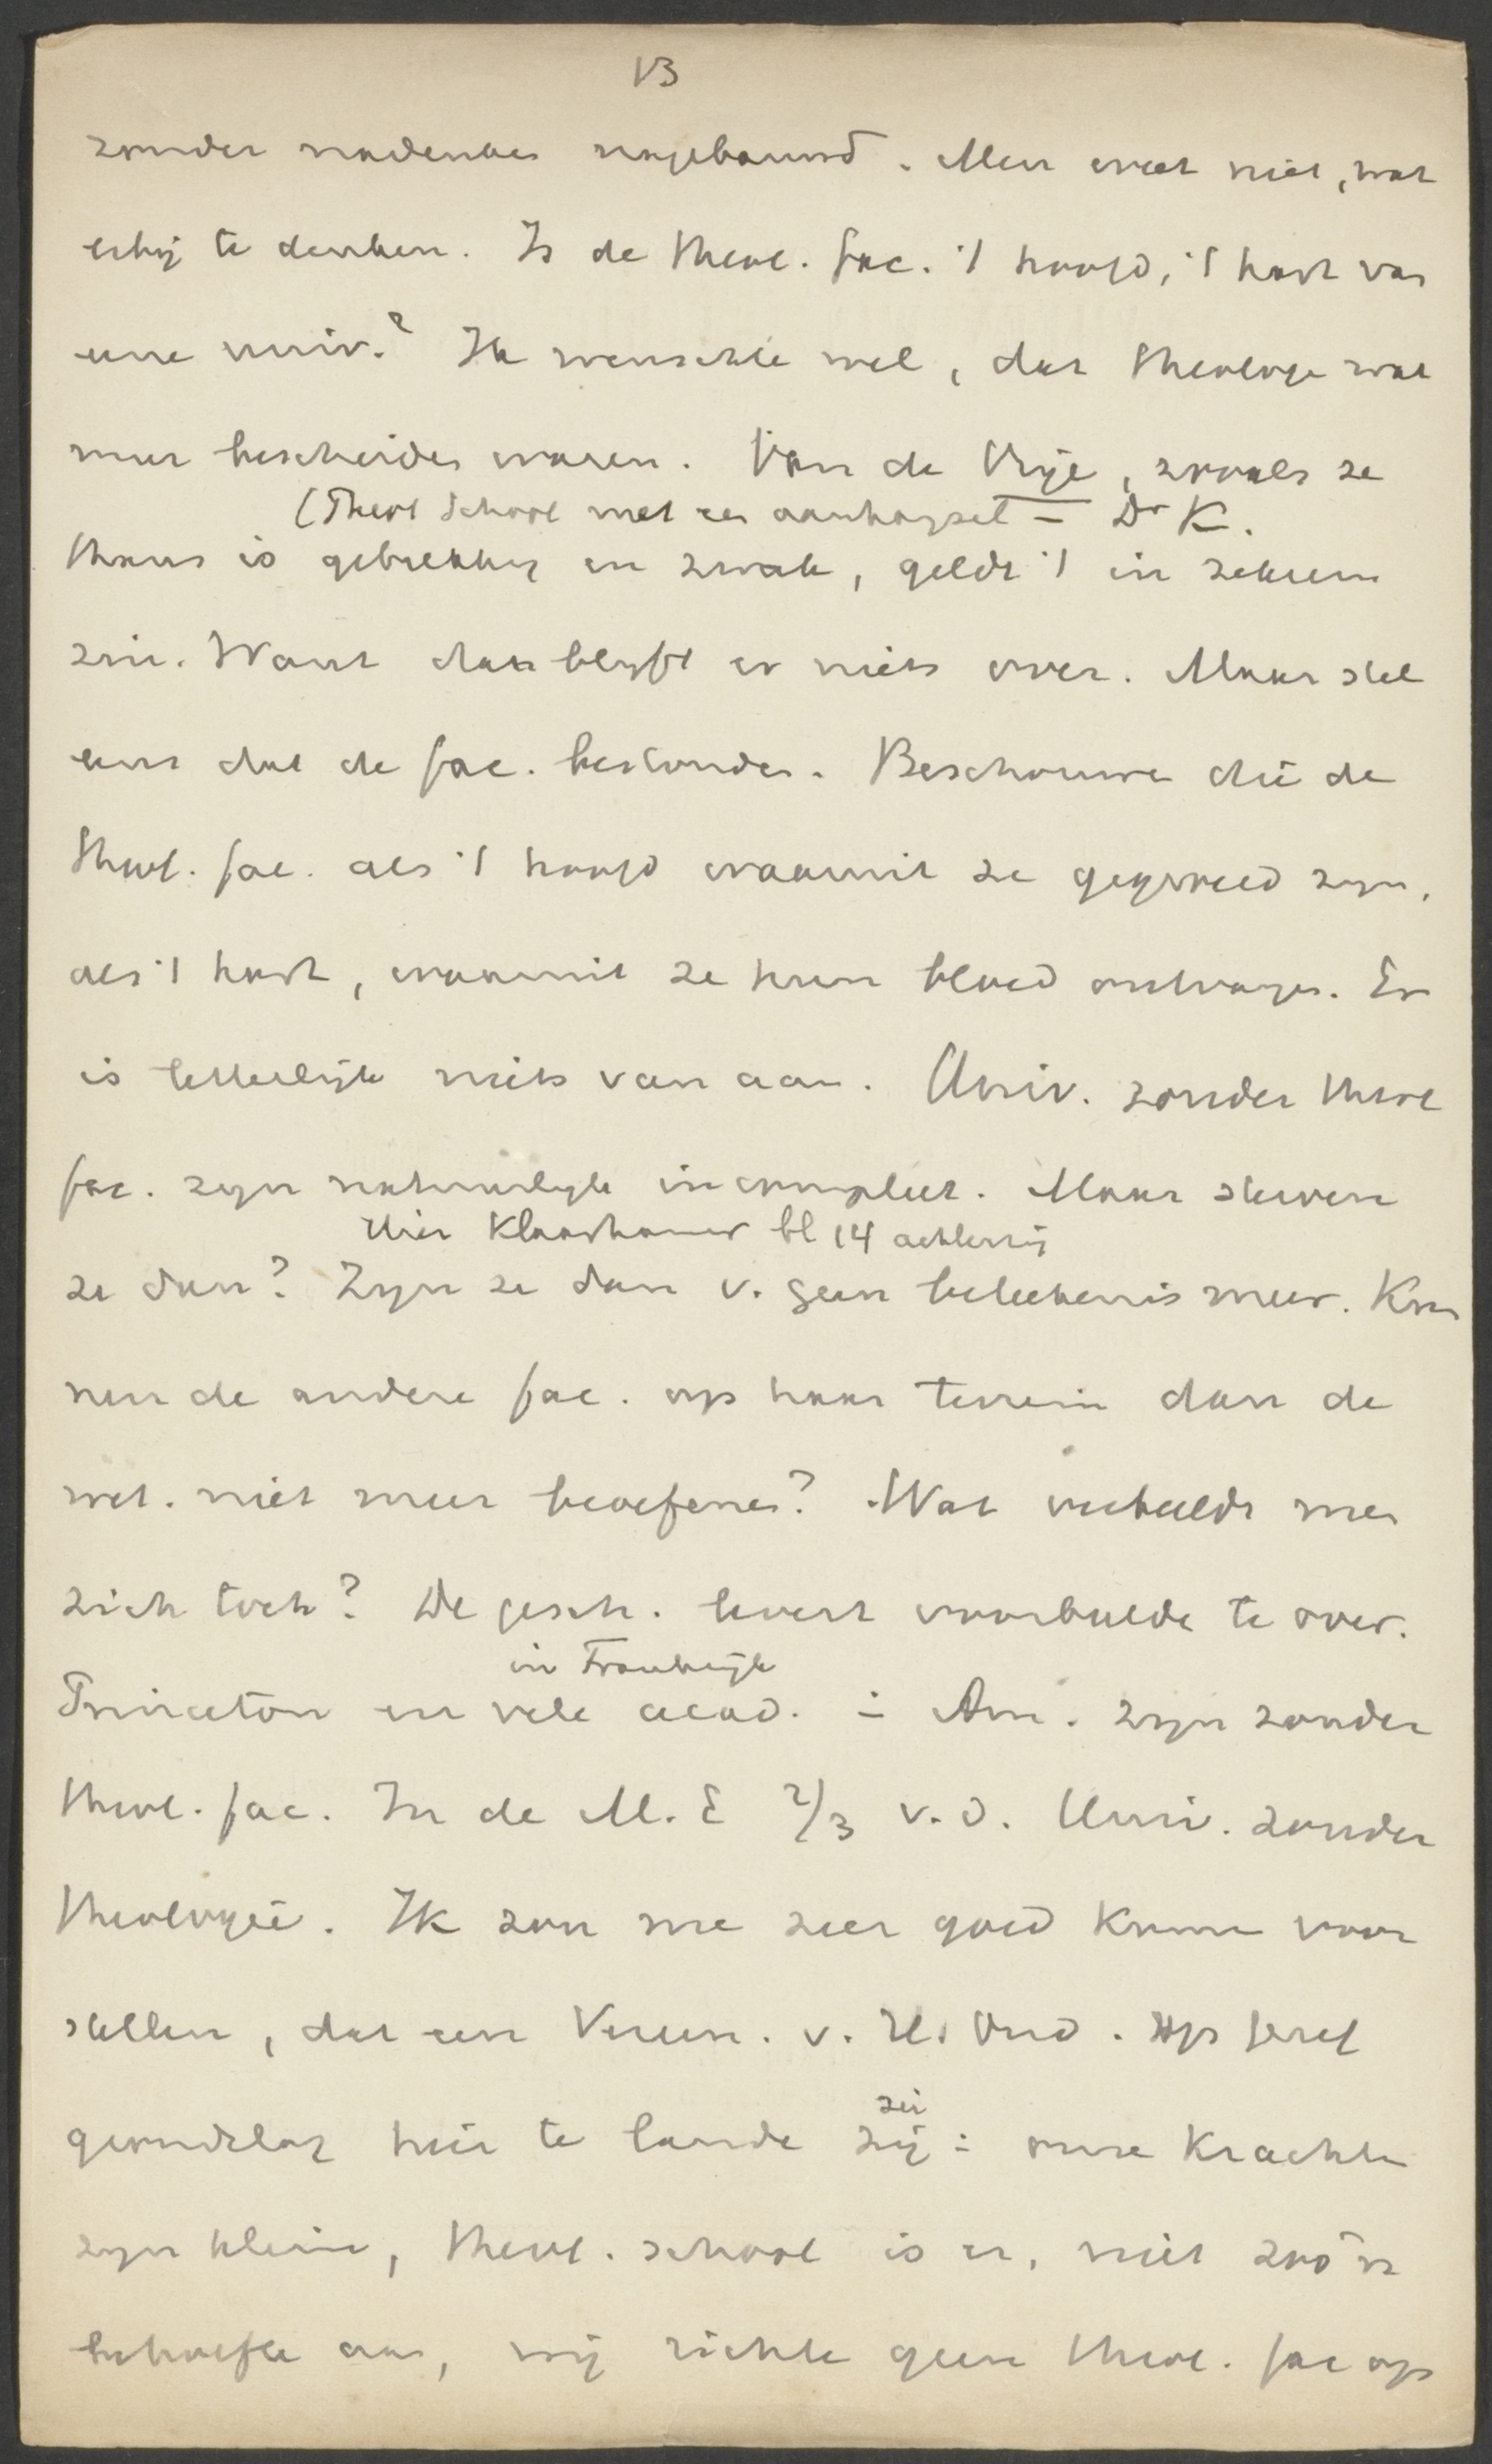 13
zonder nadenken nagebauwd. Men weet niet, wat
erbij te denken. Is de theol. fac. 't hoofd, 't hart van
eene univ.? Ik wenschte wel, dat theologe wat
meer bescheiden waren. Van de Vrije, zooals ze
(Theol School met een aanhangsel = Dr K.
thans is gebrekkig en zwak, geldt 't in zekeren
zin. Want dan blyft er niets over. Maar stel
eens dat de fac. bestonden. Beschouwen die de
theol. fac. als 't hoofd waaruit ze gegroeid zyn,
als 't hart, waaruit ze hun bloed ontvangen. Er
is letterlijk niets van aan. Univ. zonder theol
fac. zyn natuurlyk incompleet. Maar sterven
Uier Klaarhamer bl 14 achterzij
ze dan? Zyn ze dan v. geen beteekenis meer. Kun
nen de andere fac. op haar terrein dan de
wet. niet meer beoefenen? Wat verbeeldt men
zich toch? De gesch. levert voorbeelde te over.
in Frankrijk
Princeton en vele acad. in Am. zyn zonder
theol. fac. In de M. E 2/3 v. d. Univ. zonder
theologie. Ik zou me zeer goed kunnen voor
stellen, dat een Vereen. v. H. Ond. op Geref
grondslag hier te lande
zei
zij: onze krachten
zyn klein, theol. school is er, niet zoo'n
behoefte aan, wij richte geen theol. fac op